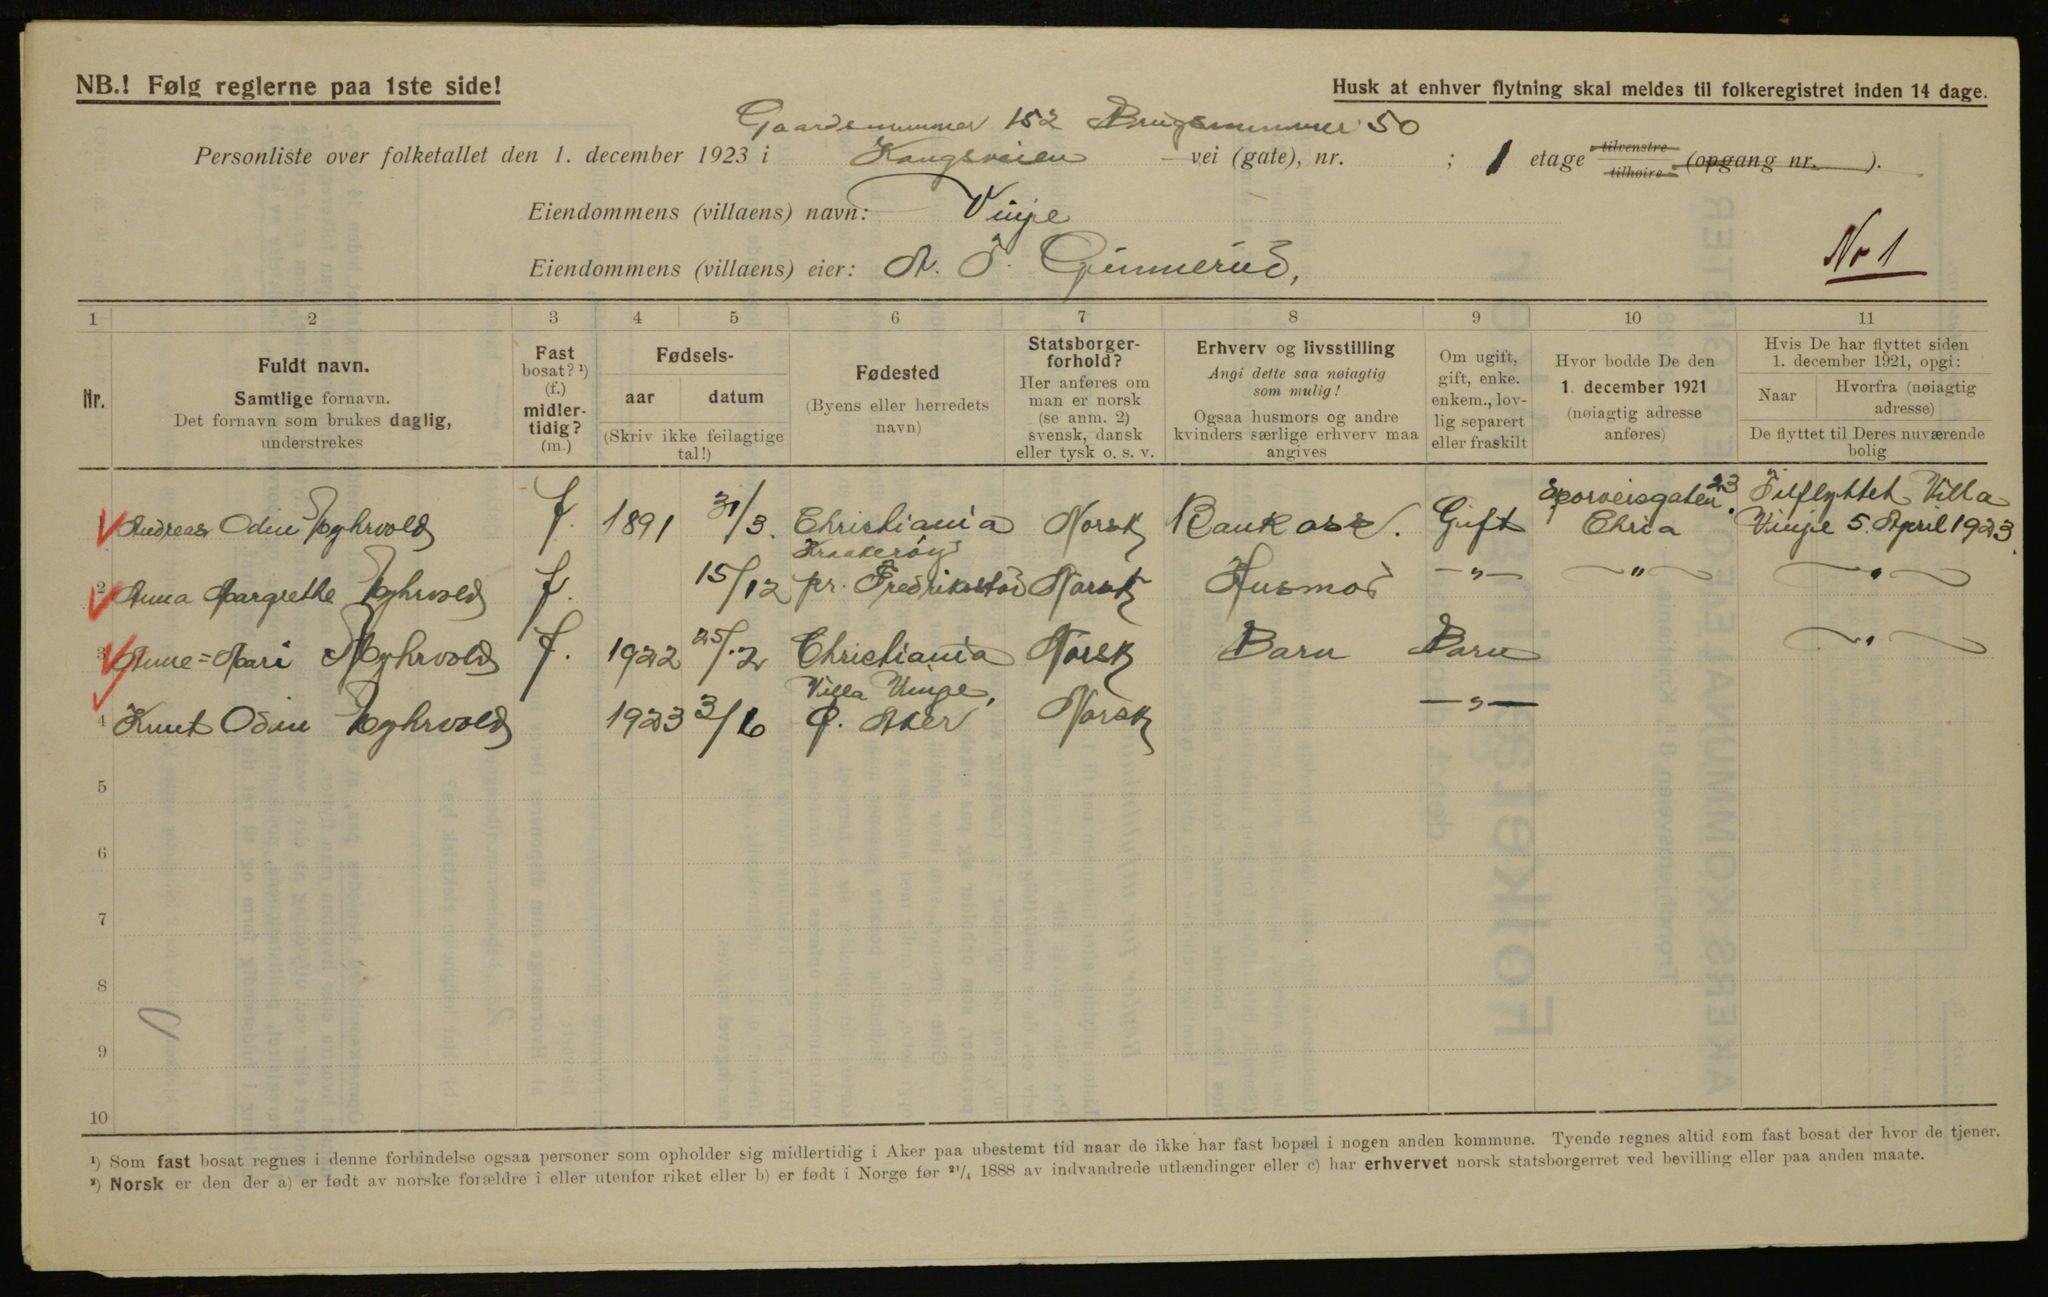 NB.! Følg reglerne paa 1ste side!
Husk at enhver flytning skal meldes til folkeregistret inden 14 dage.
Gaardsnummer 152 Brugsnummer 50
Personliste over folketallet den 1. december 1923 i Kongsveien vei (gate), nr. ; 1 etage tilvenstre tilhøire (opgang nr. ).
Eiendommens (villaens) navn: Vinje
Eiendommens (villaens) eier: A. Gunnerud,
No 1
1 2 3 4 5 6 7 8 9 10 11
Nr.
Fuldt navn.
Samtlige fornavn.
Det fornavn som brukes daglig,
understrekes
Fast
bosat? ¹)
(f.)
midler-
tidig?
(m.)
Fødsels-
aar datum
(Skriv ikke feilagtige
tal!)
Fødested
(Byens eller herredets
navn)
Statsborger-
forhold?
Her anføres om
man er norsk
(se anm. 2)
svensk, dansk
eller tysk o. s. v.
Erhverv og livsstilling
Angi dette saa nøiagtig
som mulig!
Ogsaa husmors og andre
kvinders særlige erhverv maa
angives
Om ugift,
gift, enke.
enkem., lov-
lig separert
eller fraskilt
Hvor bodde De den
1. december 1921
(nøiagtig adresse
anføres)
Hvis De har flyttet siden
1. december 1921, opgi:
Naar Hvorfra (nøiagtig
adresse)
De flyttet til Deres nuværende
bolig
1 Andreas Odin Myhrvold f. 1891 31/3. Christiania Norsk Bankass. Gift Sporveisgaten 23. Chria Tilflyttet Villa Vinje 5. April 1923.
2 Anna Margrethe Myhrvold f. 15/12 Kraakerøy pr. Fredrikstad Norsk Husmor —„— —„— —„—
3 Anne=Mari Myhrvold f. 1922 25/2 Christiania Norsk Barn Barn —„—
4 Knut Odin Myhrvold 1923 3/6 Villa Vinje, Ø. Aker Norsk —„—
5
6
7
8
9
10
¹) Som fast bosat regnes i denne forbindelse ogsaa personer som opholder sig midlertidig i Aker paa ubestemt tid naar de ikke har fast bopæl i nogen anden kommune. Tyende regnes altid som fast bosat der hvor de tjener.
²) Norsk er den der a) er født av norske forældre i eller utenfor riket eller b) er født i Norge før 21/4 1888 av indvandrede utlændinger eller c) har erhvervet norsk statsborgerret ved bevilling eller paa anden maate.